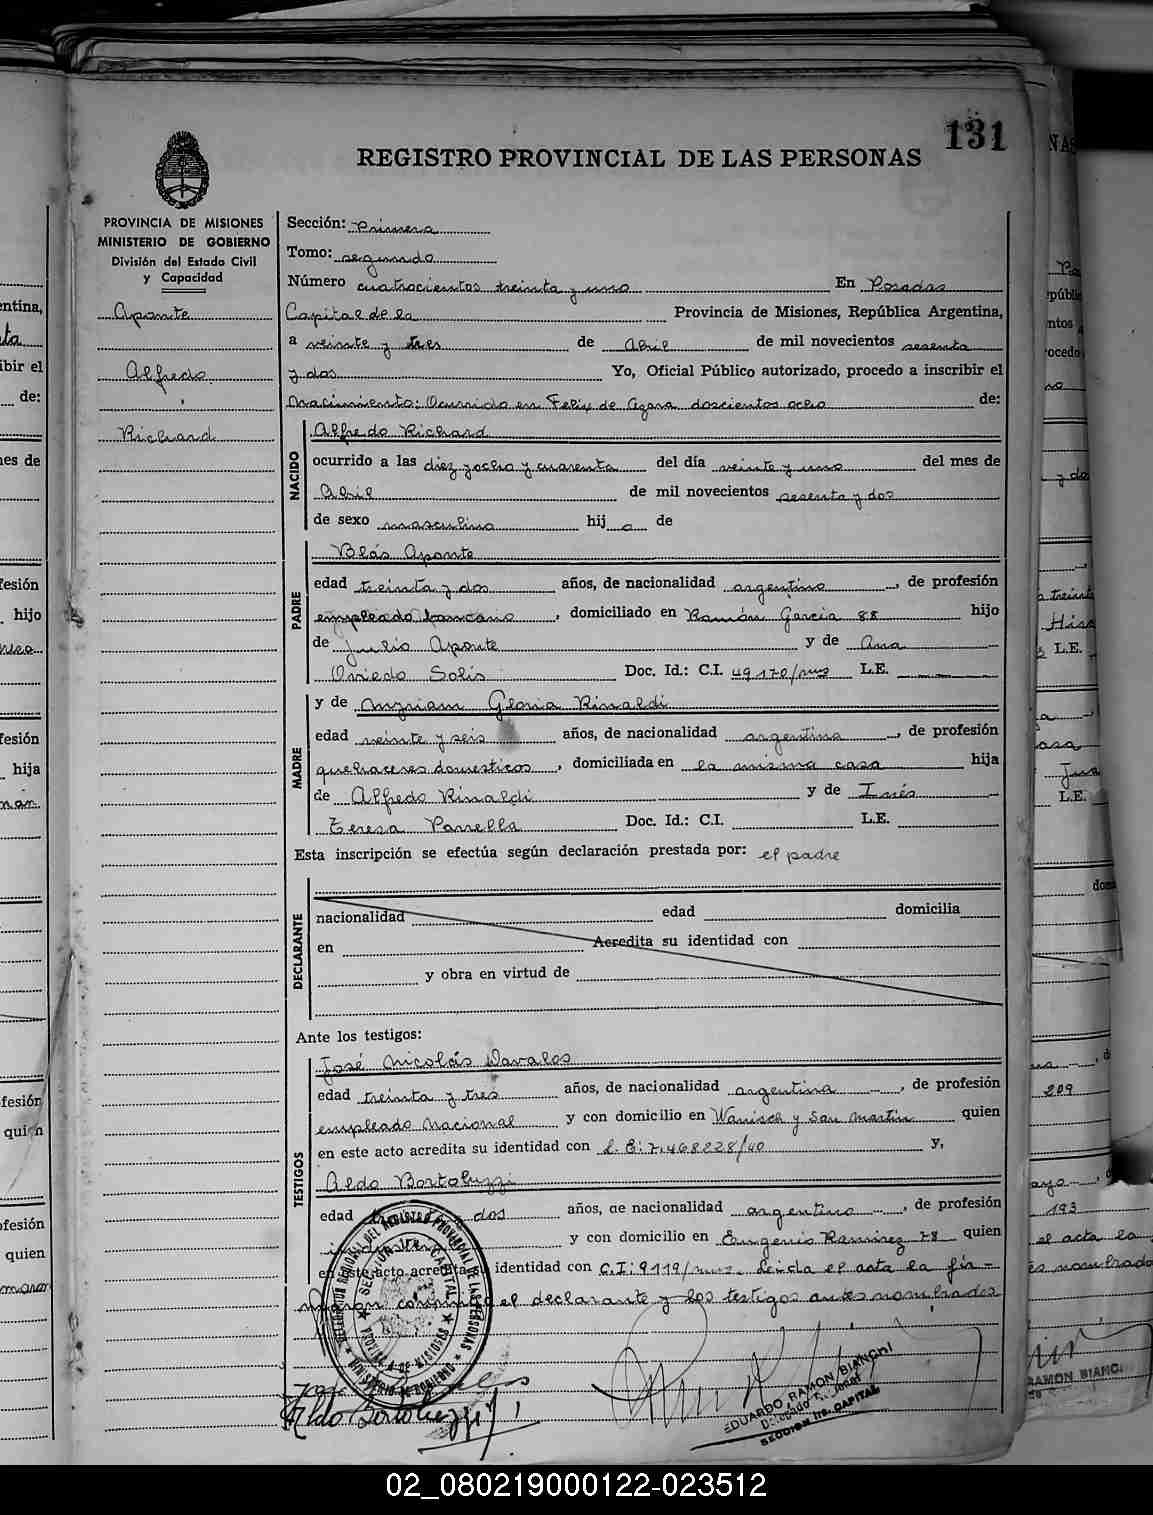 131
REGISTRO PROVINCIAL DE LAS PERSONAS
PROVINCIA DE MISIONES
MINISTERIO DE GOBIERNO
División del Estado Civil
y Capacidad
Aponte
Alfredo
Richard
Sección: Primera
Tomo: segundo
Número cuatrocientos treinta y uno En Posadas
Capital de la Provincia de Misiones, República Argentina,
a veinte y tres de Abril de mil novecientos sesenta
y dos Yo, Oficial Público autorizado, procedo a inscribir el
Nacimiento: Ocurrido en Felix de Azara doscientos ocho de:
NACIDO
Alfredo Richard
ocurrido a las diez y ocho y cuarenta del día veinte y uno del mes de
Abril de mil novecientos sesenta y dos
de sexo masculino hij o de
PADRE
Blás Aponte
edad treinta y dos años, de nacionalidad argentino, de profesión
empleado bancario, domiciliado en Ramón García 88 hijo
de Julio Aponte y de Ana
Oviedo Solis Doc. Id.: C.I. 49170/mnes L.E.
MADRE
y de Myriam Gloria Rinaldi
edad veinte y seis años, de nacionalidad argentina, de profesión
quehaceres domesticos, domiciliada en la misma casa hija
de Alfredo Rinaldi y de Inés
Teresa Parrella Doc. Id.: C.I. L.E.
Esta inscripción se efectúa según declaración prestada por: el padre
DECLARANTE
nacionalidad edad domicilia
en Acredita su identidad con
y obra en virtud de
Ante los testigos:
TESTIGOS
José Nicolás Davalos
edad treinta y tres años, de nacionalidad argentina, de profesión
empleado Nacional y con domicilio en Wanisch y San Martin quien
en este acto acredita su identidad con L.E: 7.468828/40 y,
Aldo Bortoluzzi
edad dos años, de nacionalidad argentino, de profesión
y con domicilio en Eugenio Ramirez 78 quien
en este acto acredita su identidad con C.I: 9119/mnes. Leida el acta la fir-
maron conmigo el declarante y los testigos antes nombrados
DELEGACION REGIONAL DEL REGISTRO PROVINCIAL DE LAS PERSONAS
MINISTERIO DE GOBIERNO
CAPITAL
PROVINCIA DE MISIONES
Aldo Bortoluzzi
EDUARDO RAMON BIANCHI
Delegado
SECCION 1ra. CAPITAL
02_080219000122-023512